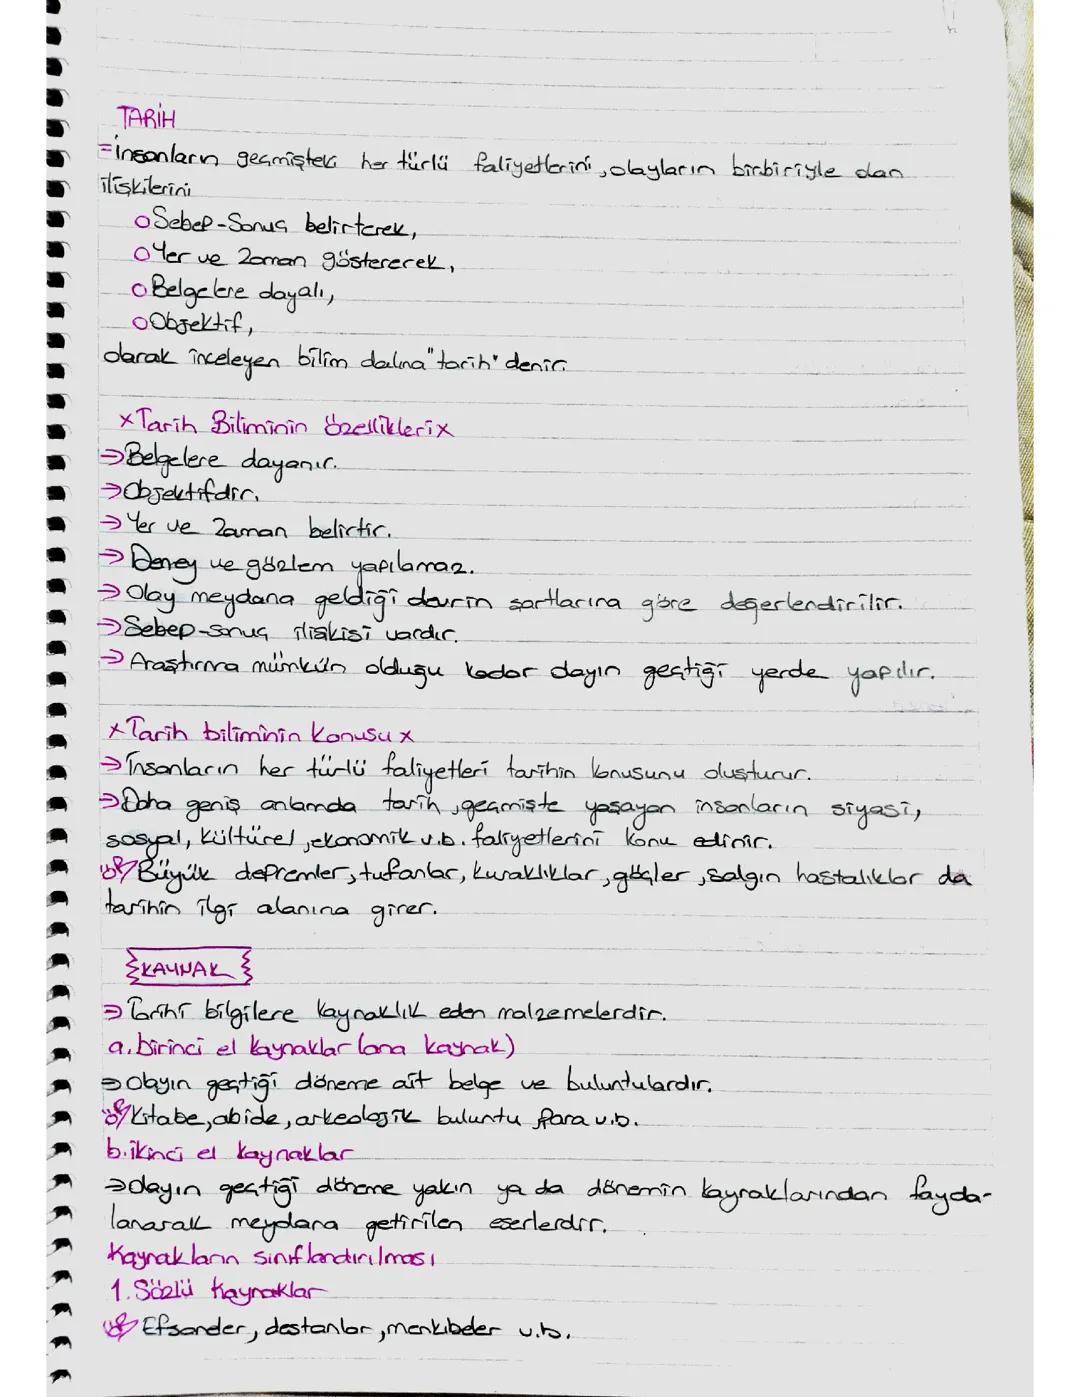 TARİH
=İnsanların geçmişteki her türlü faliyetlerini, olayların birbiriyle olan
ilişkilerini
o Sebep-Sonuç belirterek,
o Yer ve Zaman göstererek,
o Belgelere dayalı,
o Objektif,
olarak inceleyen bilim dalına "tarih" denir.
x Tarih Biliminin özellikleri x
⇒ Belgelere dayanır.
⇒ Objektifdir.
⇒ Yer ve Zaman belirtir.
⇒ Deney ve gözlem yapılamaz.
⇒ Olay meydana geldiği devrin şartlarına göre değerlendirilir.
⇒ Sebep-sonuç ilişkisi vardır.
⇒ Araştırma mümkün olduğu kadar olayın geçtiği yerde yapılır.
x Tarih biliminin konusu x
⇒ İnsanların her türlü faliyetleri tarihin konusunu oluşturur.
⇒ Daha geniş anlamda tarih, geçmişte yaşayan insanların siyasi,
sosyal, kültürel, ekonomik v.b. faliyetlerini konu edinir.
ör/ Büyük depremler, tufanlar, kuraklıklar, göçler, salgın hastalıklar da
tarihin ilgi alanına girer.
KAYNAK
⇒ Tarihi bilgilere kaynaklık eden malzemelerdir.
a. birinci el kaynaklar (ana kaynak)
⇒ Olayın geçtiği döneme ait belge ve buluntulardır.
ör/ Kitabe, abide, arkeolojik buluntu para v.b.
b. ikinci el kaynaklar
⇒ Olayın geçtiği döneme yakın ya da dönemin kaynaklarından fayda-
lanarak meydana getirilen eserlerdir.
Kaynakların sınıflandırılması
1. Sözlü Kaynaklar
ör/ Efsaneler, destanlar, menkıbeler v.b.